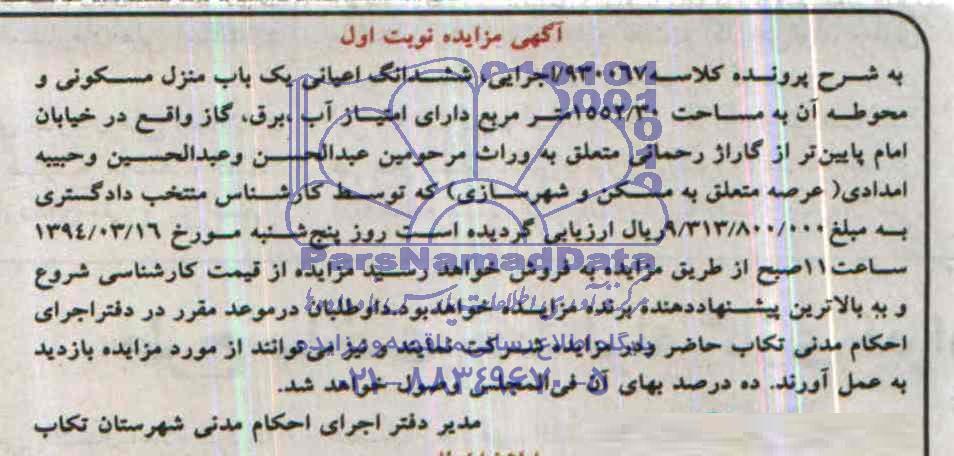 آگهی مزایده نوبت اول
به شرح پرونده کلاسه ۹۳۰۰۶۷/اجرایی، ششدانگ اعیانی یک باب منزل مسکونی و
محوطه آن به مساحت ۱۵۵۲/۳۰متر مربع دارای امتیاز آب ،برق، گاز واقع در خیابان
امام پایین‌تر از گاراژ رحمانی متعلق به وراث مرحومین عبدالحسن وعبدالحسین وحبیبه
امدادی( عرصه متعلق به مسکن و شهرسازی) که توسط کارشناس منتخب دادگستری
به مبلغ ۹/۳۱۳/۸۰۰/۰۰۰ریال ارزیابی گردیده است روز پنج‌شنبه مورخ ۱۳۹٤/۰۳/۱۶
ساعت۱۱صبح از طریق مزایده به فروش خواهد رسید مزایده از قیمت کارشناسی شروع
و به بالاترین پیشنهاددهنده برنده مزایده خواهدبود.داوطلبان درموعد مقرر در دفتراجرای
احکام مدنی تکاب حاضر ودر مزایده شرکت نمایند و نیز می‌توانند از مورد مزایده بازدید
به عمل آورند. ده درصد بهای آن فی‌المجلس وصول خواهد شد.
مدیر دفتر اجرای احکام مدنی شهرستان تکاب
ParsNamadData
پایگاه اطلاع رسانی مناقصه و مزایده
۰۲۱-۸۸۳٤۹۶۷۰-۵